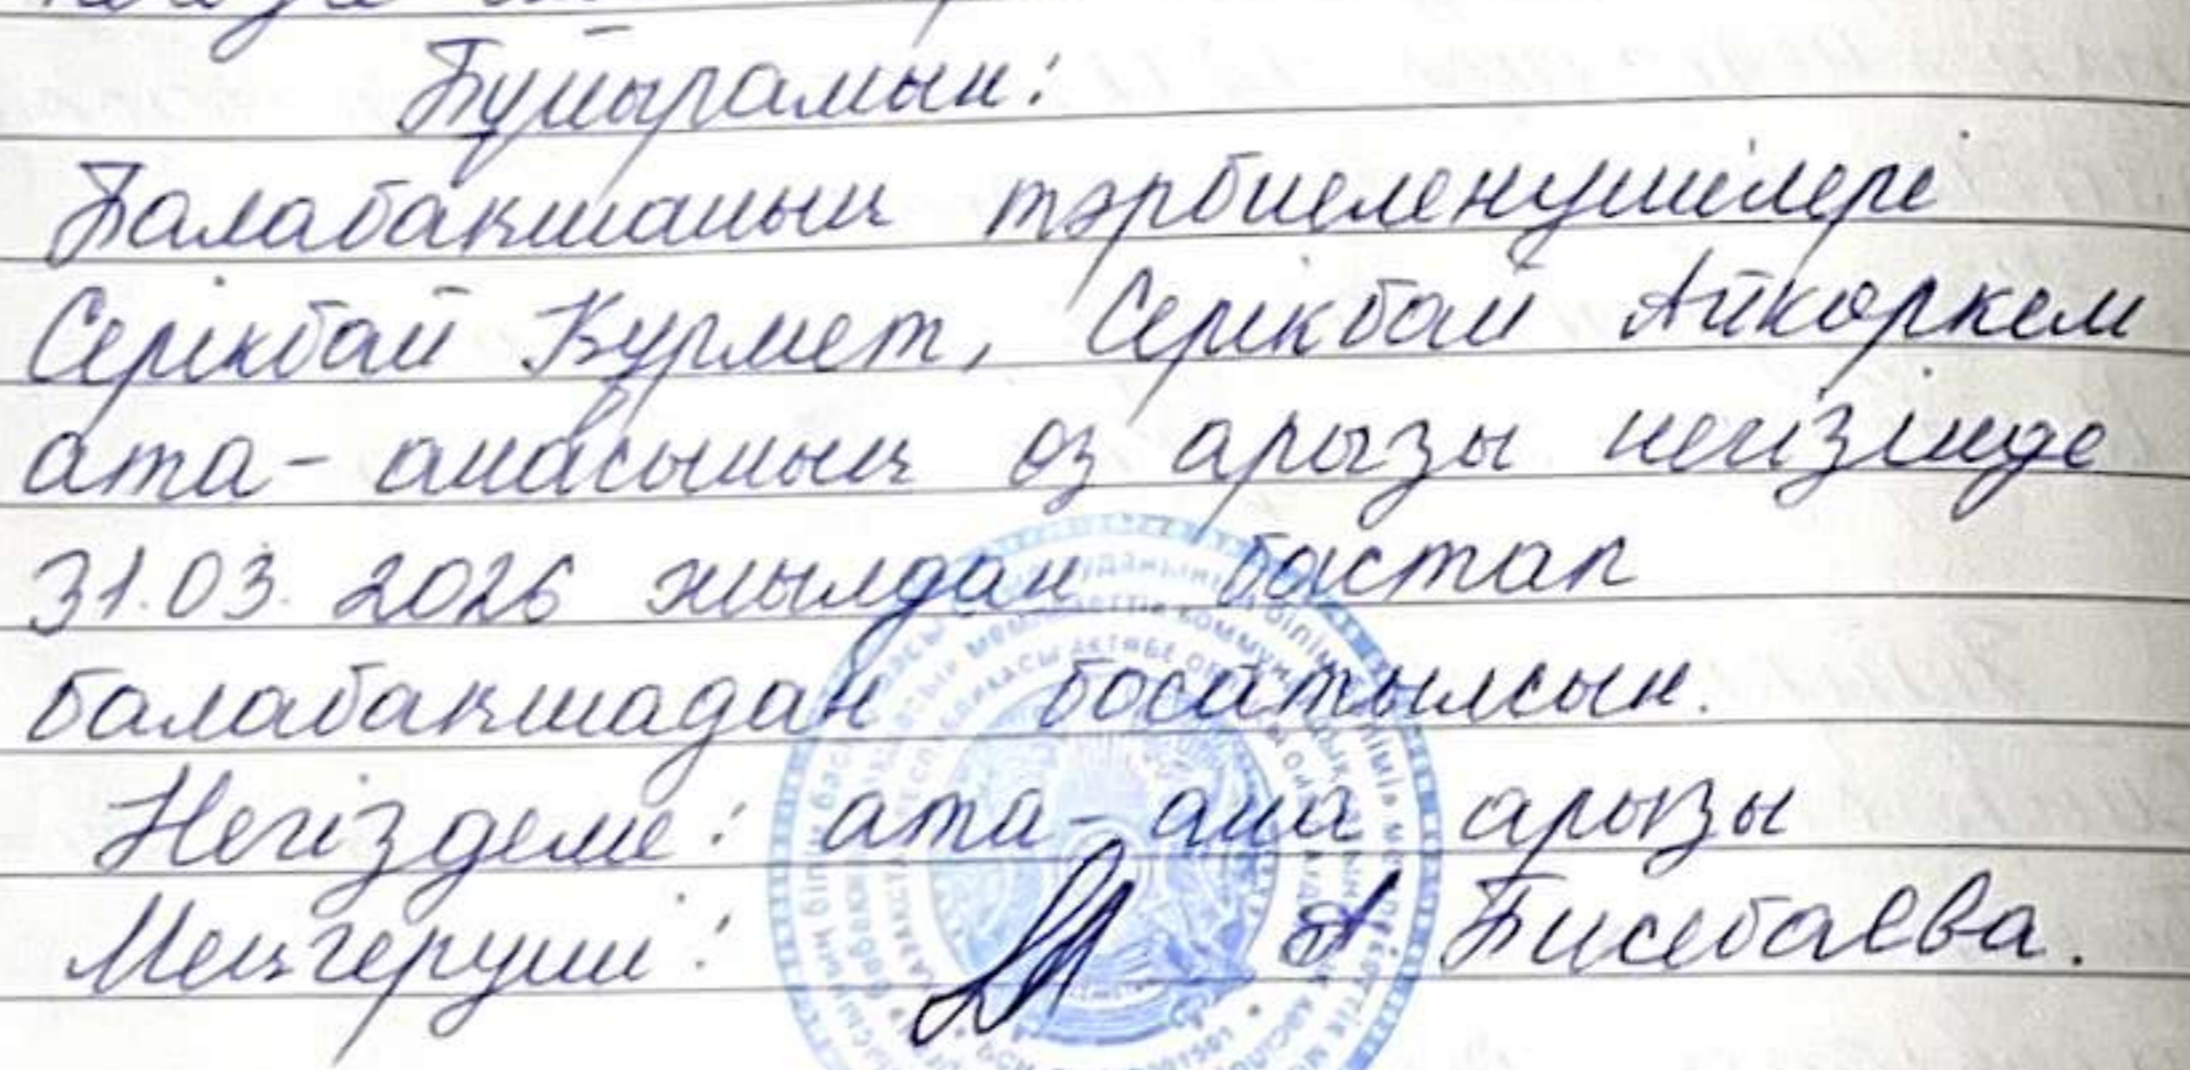 Бұйырамын:
Балабақшаның тәрбиеленушілері
Серікбай Құрмет, Серікбай Айкөркем
ата-анасының өз арызы негізінде
31.03.2026 жылдан бастап
балабақшадан босатылсын.
Негіздеме: ата-ана арызы
Меңгеруші: А Бисебаева.